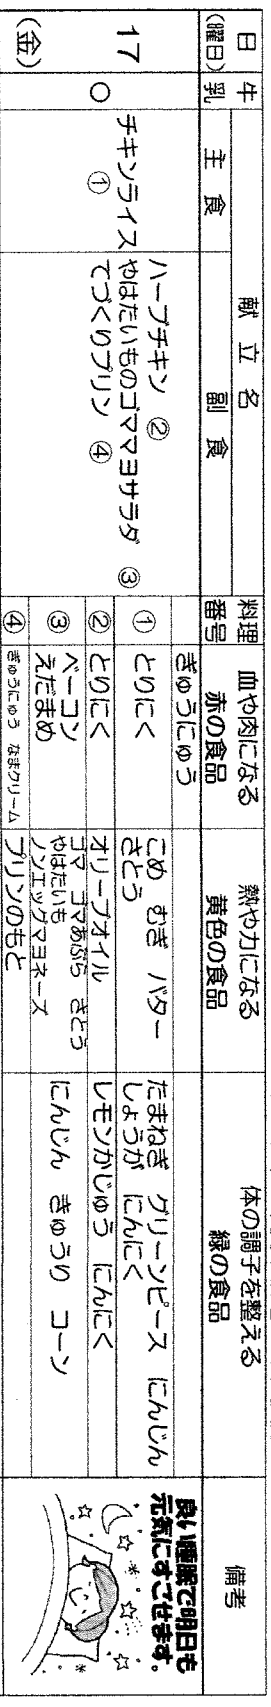 日
(曜日)
牛
乳
献立名
主食
副食
料理
番号
血や肉になる
赤の食品
熱や力になる
黄色の食品
体の調子を整える
緑の食品
備考
17
(金)
○
チキンライス
①
ハーブチキン ②
やはたいものゴママヨサラダ ③
てづくりプリン ④
ぎゅうにゅう
①
とりにく
こめ むぎ バター
さとう
たまねぎ グリーンピース にんじん
しょうが にんにく
②
とりにく
オリーブオイル
レモンかじゅう にんにく
③
ベーコン
えだまめ
ゴマ ゴマあぶら さとう
やはたいも
ノンエッグマヨネーズ
にんじん きゅうり コーン
④
ぎゅうにゅう なまクリーム
プリンのもと
良い睡眠で明日も
元気にすごせます。